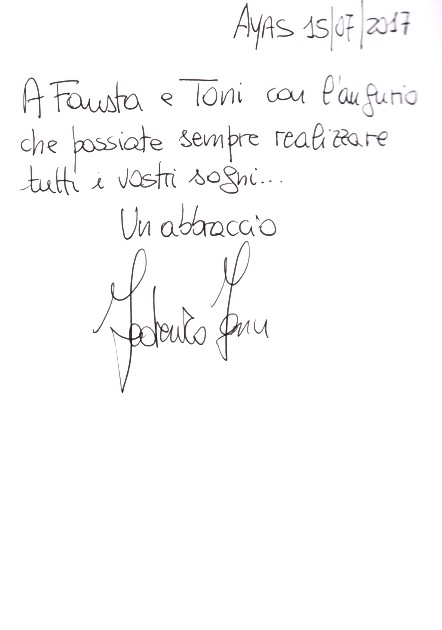 AYAS 15/07/2017
A Fausta e Toni con l'augurio
che possiate sempre realizzare
tutti i vostri sogni...
Un abbraccio
Federico